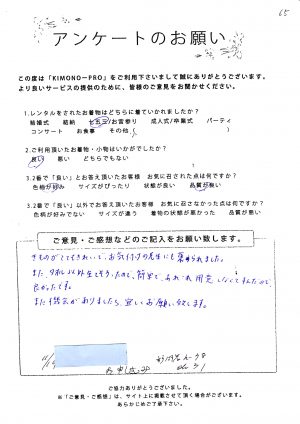 65
アンケートのお願い
この度は「KIMONO－PRO」をご利用下さいまして誠にありがとうございます。
より良いサービスの提供のために、皆様のご意見をお聞かせください。
1.レンタルをされたお着物はどちらに着ていかれましたか？
結婚式 結納 七五三/お宮参り 成人式/卒業式 パーティ
コンサート お食事 その他( )
2.ご利用頂いたお着物・小物はいかがでしたか？
良い 悪い どちらでもない
3.2番で「良い」とお答え頂いたお客様 お気に召された点は何ですか？
色柄が好み サイズがぴったり 状態が良い 品質が良い
3.2番で「良い」以外でお答え頂いたお客様 お気に召さなかった点は何ですか？
色柄が好みでない サイズが違う 着物の状態が悪かった 品質が悪い
ご意見・ご感想などのご記入をお願い致します。
きものがとてもきれいで、お気付の先生にも褒められました。
また、タオル以外
そろっ
簡単で、あれこれ用意しなくてすんだので
良かったです。
また機会がありましたら、宜しくお願い致します。
ご協力ありがとうございました。
※「ご意見・ご感想」は、サイト上に掲載させて頂く場合がございます。
あらかじめご了承下さい。